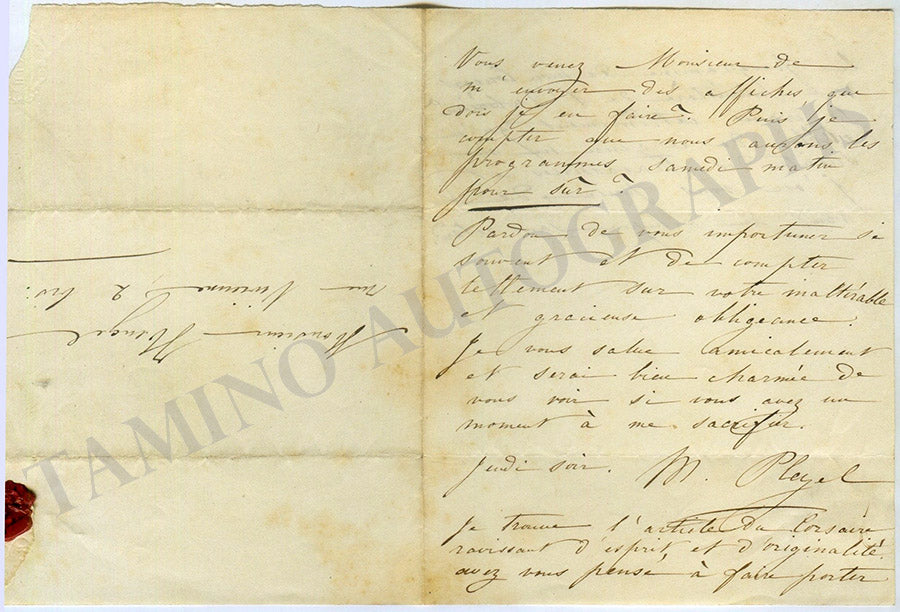 Vous venez Monsieur de
m'envoyer des affiches que
dois je en faire? Puis je
compter que nous aurons les
programmes samedi matin
pour sûr?
Pardon de vous importuner si
souvent et de compter
tellement sur votre inaltérable
et gracieuse obligeance.
Je vous salue amicalement
et serai bien charmée de
vous voir si vous avez un
moment à me sacrifier.
Jeudi soir.
M. Pleyel
Je trouve l'article du Corsaire
ravissant d'esprit et d'originalité.
avez vous pensé à faire porter
Monsieur
rue Vivienne 2 bis.
TAMINO AUTOGRAPHS